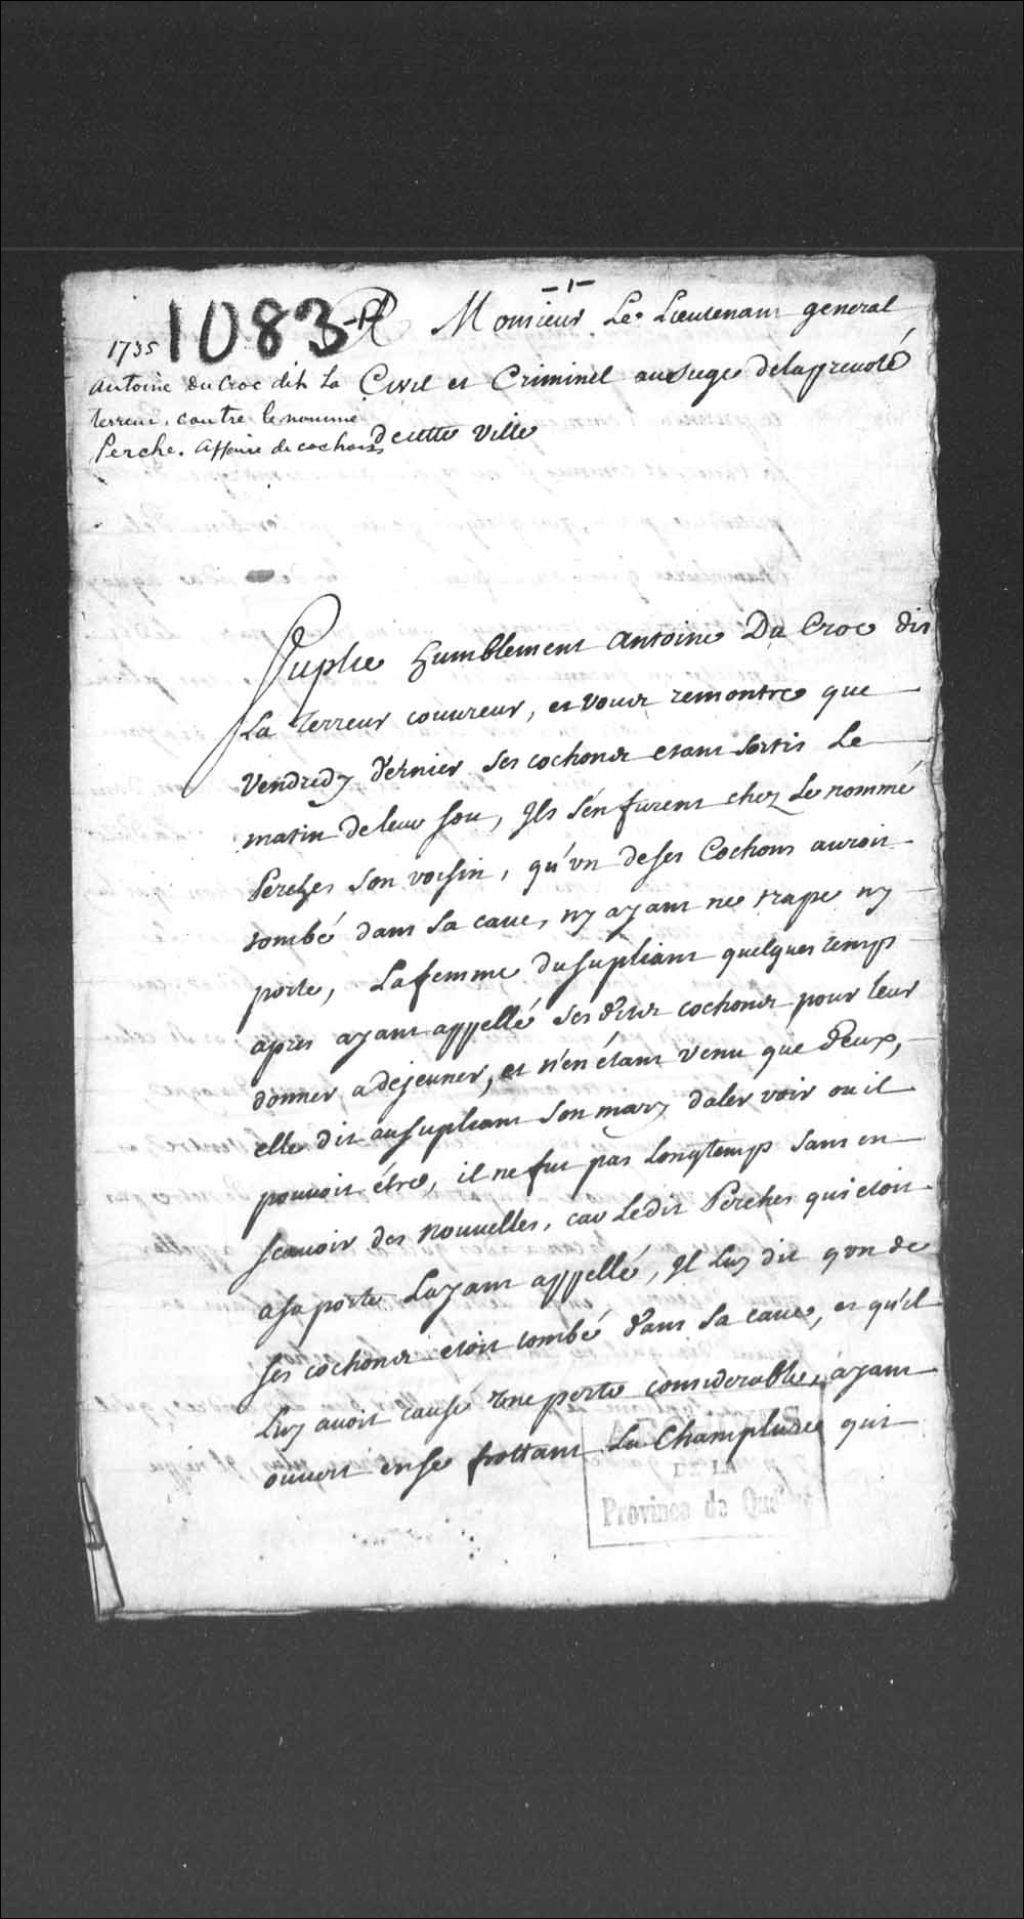 -1-
1083-A Monsieur Le Lieutenant general
1735
Antoine Du Croc dit La
terreur, contre le nommé
Perche. Affaire de cochons
Civil et Criminel au Siege delaprevoté
decette Ville
Suplie humblement Antoine Du Croc dit
La Terreur couvreur, et vous remontre que
Vendredy dernier ses cochons etant sortis Le
matin deleur sou, Ils s'en furent chez Le nommé
Perches son voisin, qu'un deses Cochons auroit
tombé dans sa cave, ny ayant ne trape ny
porte, Lafemme dusupliant quelques temps
apres ayant appellé ses dits cochons pour leur
donner adejeuner, et n'en étant venu que deux,
elle dit ausupliant son mary daler voir ou il
pouvoit étre, il nefut pas Longtemps sans en
scavoir des Nouvelles, car Ledit Perches qui etoit
asaporte Layant appellé, Il Luy dit qvn de
ses cochons etoit tombé dans sa cave, et qu'il
Luy avoit causé vne perte considerable, ayant
ouvert ense frottant La Champlure qui
ARCHIVES
DE LA
Province de Québec